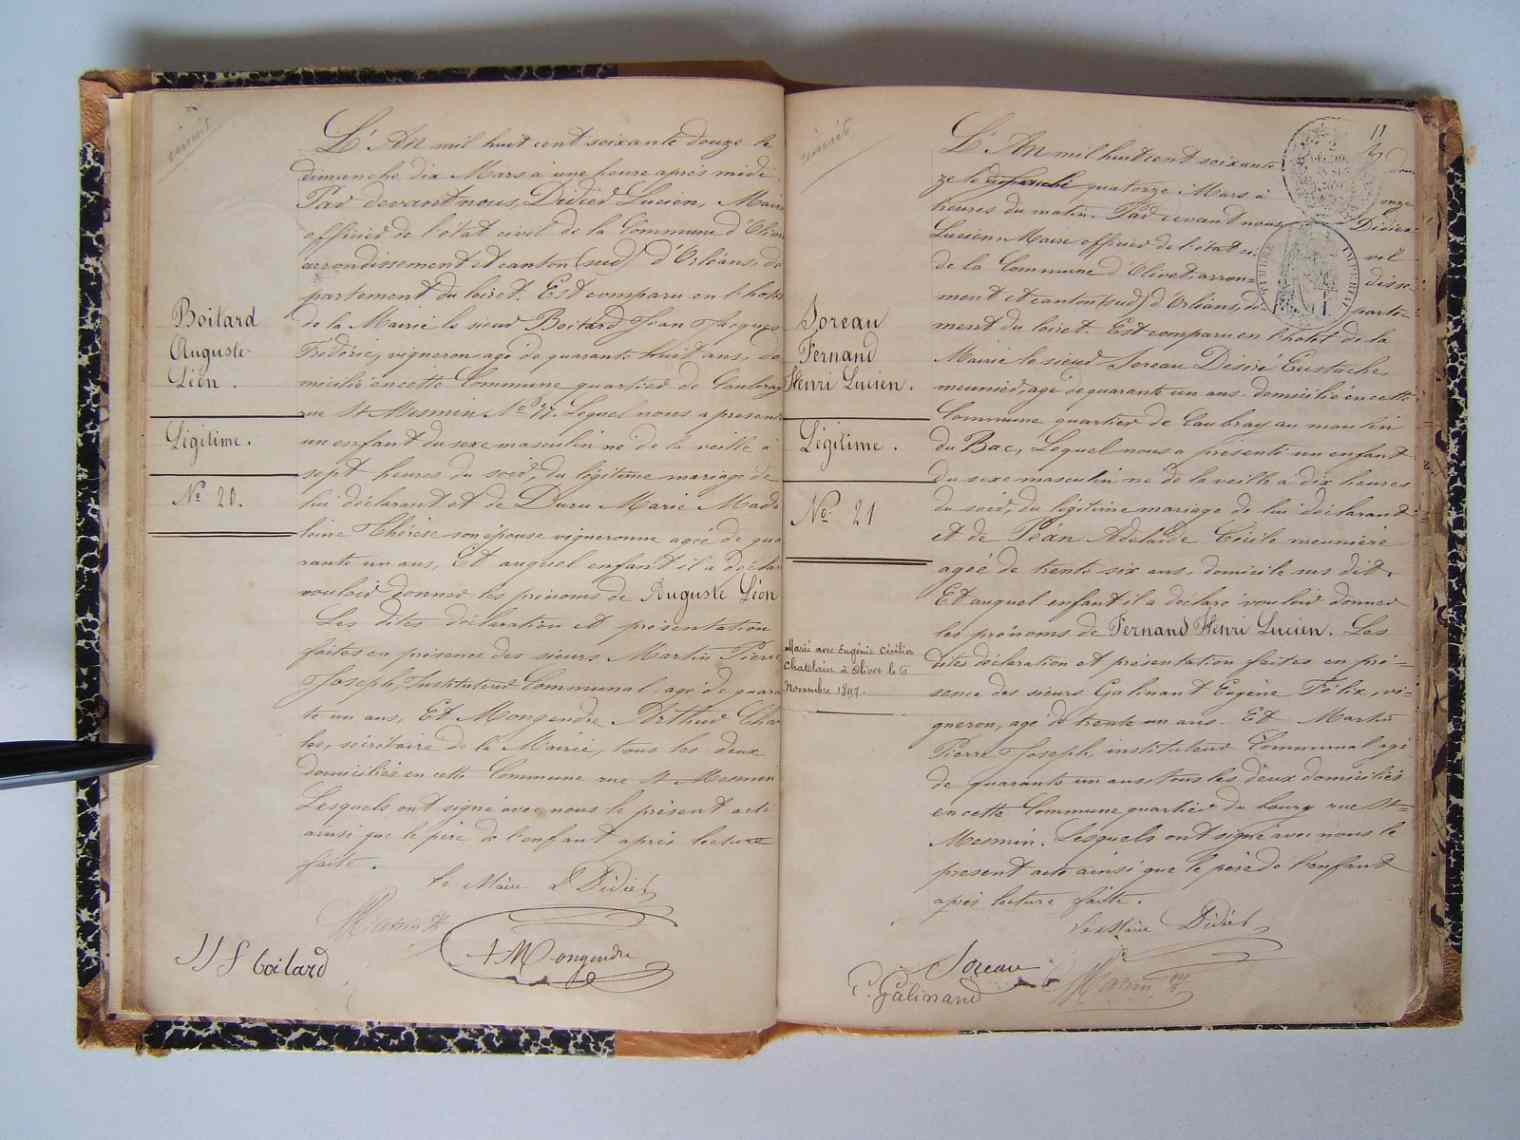 L'An mil huit cent soixante douze le
dimanche dix Mars à une heure après midi
Par devant nous, Didier Lucien, Maire
officier de l'état civil de la Commune d'Olivet
arrondissement et canton (sud) d'Orléans, dé
partement du loiret. Est comparu en l'hotel
de la Mairie le sieur Boitard Jean Jacques
Frédéric, vigneron agé de quarante huit ans, do
micilié en cette Commune quartier de Caubray
rue St Mesmin No 77. Lequel nous a présenté
un enfant du sexe masculin né de la veille à
sept heures du soir, du légitime mariage de
lui déclarant et de Duru Marie Made
leine Thérèse son épouse vigneronne agée de qua
rante un ans, Et auquel enfant il a déclaré
vouloir donner les prénoms de Auguste Léon
Les dites déclaration et présentation
faites en présence des sieurs Martin Pierre
Joseph, Instituteur Communal, agé de quaran
te un ans, Et Mongendre Arthur Char
les, sécrétaire de la Mairie, tous les deux
domiciliés en cette Commune rue St Mesmin
Lesquels ont signé avec nous le présent acte
ainsi que le père de l'enfant après lecture
faite.
le Maire L Didier
Martin
A Mongendre
JJF boitard
Boitard
Auguste
Léon.
Légitime.
No 20.
11
L'An mil huit cent soixante dou
ze le quatorze Mars à onze
heures du matin. Par devant nous Didier
Lucien Maire officier de l'état civil
de la Commune d'Olivet, arrondisse
ment et canton (sud) d'Orléans, départe-
ment du loiret. Est comparu en l'hotel de la
Mairie le sieur Soreau Désiré Eustache,
meunier, agé de quarante un ans domicilié en cette
Commune quartier de Caubray au moulin
du Bac, Lequel nous a présenté un enfant
du sexe masculin né de la veille à dix heures
du soir, du légitime mariage de lui déclarant
et de Péan Adelaïde Cécile meunière
agée de trente six ans, domicile sus dit.
Et auquel enfant il a déclaré vouloir donner
les prénoms de Fernand Henri Lucien. Les
dites déclaration et présentation faites en pré=
sence des sieurs Galinand Eugène Félix, vi=
gneron, agé de trente un ans. Et Martin
Pierre Joseph, instituteur Communal agé
de quarante un ans tous les deux domiciliés
en cette Commune quartier du bourg rue St=
Mesmin. Lesquels ont signé avec nous le
présent acte ainsi que le père de l'enfant
après lecture faite.
le Maire Didier
Soreau
Martin
E. Galinand
Soreau
Fernand
Henri Lucien.
Légitime.
No 21
Marié avec Eugénie
Chatelain à Olivet le 6
Novembre 1897.